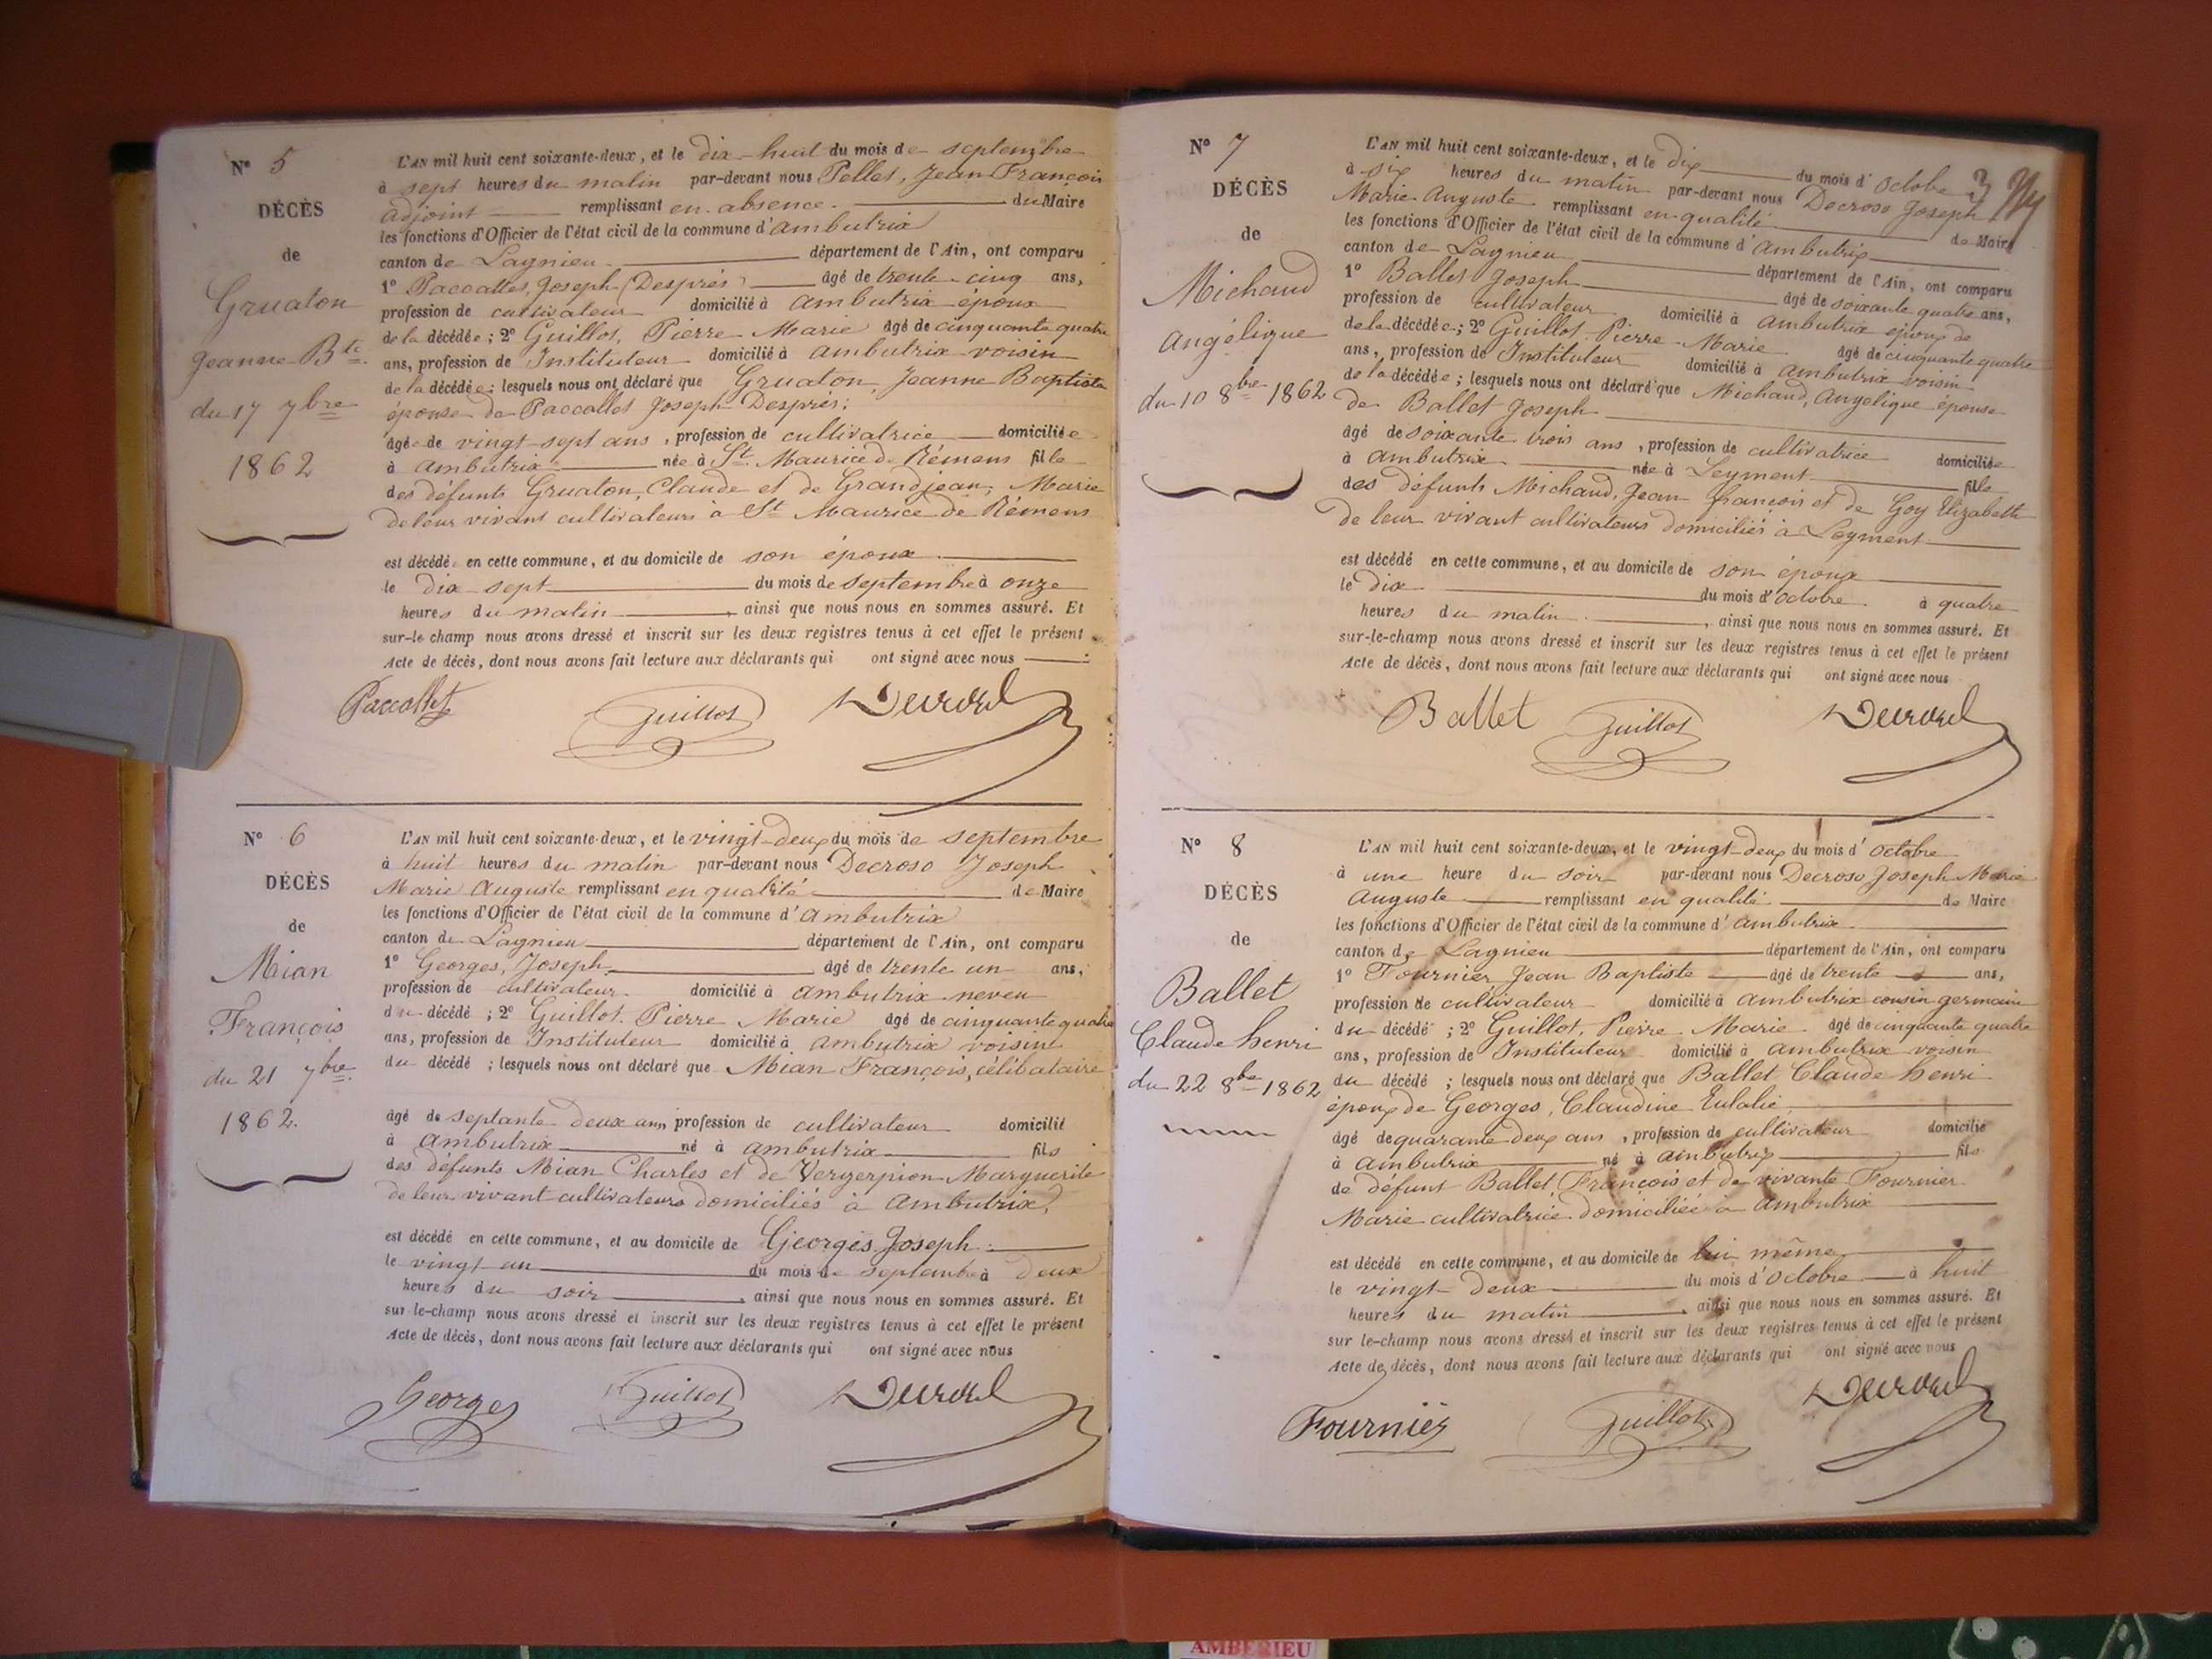 N° 5
DÉCÈS
de
Gruaton
Jeanne Bte
du 17 7bre
1862
L'AN mil huit cent soixante-deux, et le dix-huit du mois de septembre
à sept heures du matin par-devant nous Pellet, Jean François
adjoint remplissant en absence du Maire
les fonctions d'Officier de l'état civil de la commune d'ambutrix
canton de Lagnieu département de l'Ain, ont comparu
1° Paccallet, Joseph (Després) âgé de trente-cinq ans,
profession de cultivateur domicilié à ambutrix époux
de la décédée ; 2° Guillot, Pierre Marie âgé de cinquante quatre
ans, profession de Instituteur domicilié à ambutrix voisin
de la décédée ; lesquels nous ont déclaré que Gruaton, Jeanne Baptiste
épouse de Paccallet Joseph Després ;
âgée de vingt-sept ans, profession de cultivatrice domiciliée
à ambutrix née à St Maurice de Rémens fille
des défunts Gruaton, Claude et de Grandjean, Marie
de leur vivant cultivateurs a St Maurice de Rémens
est décédée en cette commune, et au domicile de son époux
le dix-sept du mois de septembre à onze
heures du matin, ainsi que nous nous en sommes assuré. Et
sur-le champ nous avons dressé et inscrit sur les deux registres tenus à cet effet le présent
Acte de décès, dont nous avons fait lecture aux déclarants qui ont signé avec nous
Paccallet Guillot Decroso
N° 6
DÉCÈS
de
Mian
François
du 21 7bre
1862.
L'AN mil huit cent soixante-deux, et le vingt-deux du mois de septembre
à huit heures du matin par-devant nous Decroso Joseph
Marie Auguste remplissant en qualité de Maire
les fonctions d'Officier de l'état civil de la commune d'ambutrix
canton de Lagnieu département de l'Ain, ont comparu
1° Georges, Joseph âgé de trente un ans,
profession de cultivateur domicilié à ambutrix neveu
du décédé ; 2° Guillot, Pierre Marie âgé de cinquante quatre
ans, profession de Instituteur domicilié à ambutrix voisin
du décédé ; lesquels nous ont déclaré que Mian François, célibataire
âgé de septante deux ans, profession de cultivateur domicilié
à ambutrix né à ambutrix fils
des défunts Mian Charles et de Vergerpion Marguerite
de leur vivant cultivateurs domiciliés à ambutrix,
est décédé en cette commune, et au domicile de Georges Joseph
le vingt-un du mois de septembre à deux
heures du soir, ainsi que nous nous en sommes assuré. Et
sur-le-champ nous avons dressé et inscrit sur les deux registres tenus à cet effet le présent
Acte de décès, dont nous avons fait lecture aux déclarants qui ont signé avec nous
Georges Guillot Decroso
N° 7
DÉCÈS
de
Michaud
Angélique
du 10 8bre 1862
3
L'AN mil huit cent soixante-deux, et le dix du mois d'octobre
à six heures du matin par-devant nous Decroso Joseph
Marie Auguste remplissant en qualité de Maire
les fonctions d'Officier de l'état civil de la commune d'ambutrix
canton de Lagnieu département de l'Ain, ont comparu
1° Ballet Joseph âgé de soixante quatre ans,
profession de cultivateur domicilié à ambutrix époux de
de la décédée ; 2° Guillot Pierre Marie âgé de cinquante quatre
ans, profession de Instituteur domicilié à ambutrix voisin
de la décédée ; lesquels nous ont déclaré que Michaud, Angelique épouse
de Ballet Joseph
âgé de soixante trois ans, profession de cultivatrice domiciliée
à ambutrix née à Leyment fille
des défunts Michaud, Jean françois et de Goy Elizabeth
de leur vivant cultivateurs domiciliés à Leyment
est décédé en cette commune, et au domicile de son époux
le dix du mois d'octobre à quatre
heures du matin, ainsi que nous nous en sommes assuré. Et
sur-le-champ nous avons dressé et inscrit sur les deux registres tenus à cet effet le présent
Acte de décès, dont nous avons fait lecture aux déclarants qui ont signé avec nous
Ballet Guillot Decroso
N° 8
DÉCÈS
de
Ballet
Claude henri
du 22 8bre 1862
L'AN mil huit cent soixante-deux, et le vingt-deux du mois d'octobre
à une heure du soir par-devant nous Decroso Joseph Marie
Auguste remplissant en qualité de Maire
les fonctions d'Officier de l'état civil de la commune d'ambutrix
canton de Lagnieu département de l'Ain, ont comparu
1° Fournier Jean Baptiste âgé de trente ans,
profession de cultivateur domicilié à ambutrix cousin germain
du décédé ; 2° Guillot, Pierre Marie âgé de cinquante quatre
ans, profession de Instituteur domicilié à ambutrix voisin
du décédé ; lesquels nous ont déclaré que Ballet Claude henri
époux de Georges, Claudine Eulalie
âgé de quarante deux ans, profession de cultivateur domicilié
à ambutrix né à ambutrix fils
de défunt Ballet, François et de vivante Fournier
Marie cultivatrice domiciliée à ambutrix
est décédé en cette commune, et au domicile de lui même
le vingt deux du mois d'octobre à huit
heures du matin, ainsi que nous nous en sommes assuré. Et
sur le-champ nous avons dressé et inscrit sur les deux registres tenus à cet effet le présent
Acte de décès, dont nous avons fait lecture aux déclarants qui ont signé avec nous
Fournier Guillot Decroso
AMBERIEU